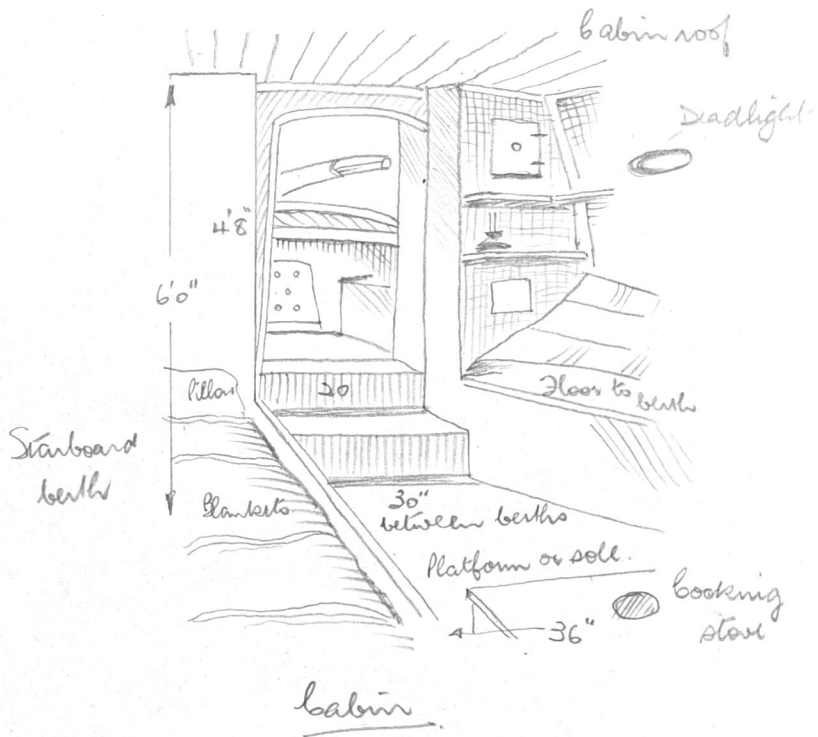 Cabin roof
Deadlight
4'8"
6'0"
Pillow
20
Floor to
berth
Starboard
berth
Blankets
30"
between berths
Platform or sole.
Cooking
stove
36"
Cabin